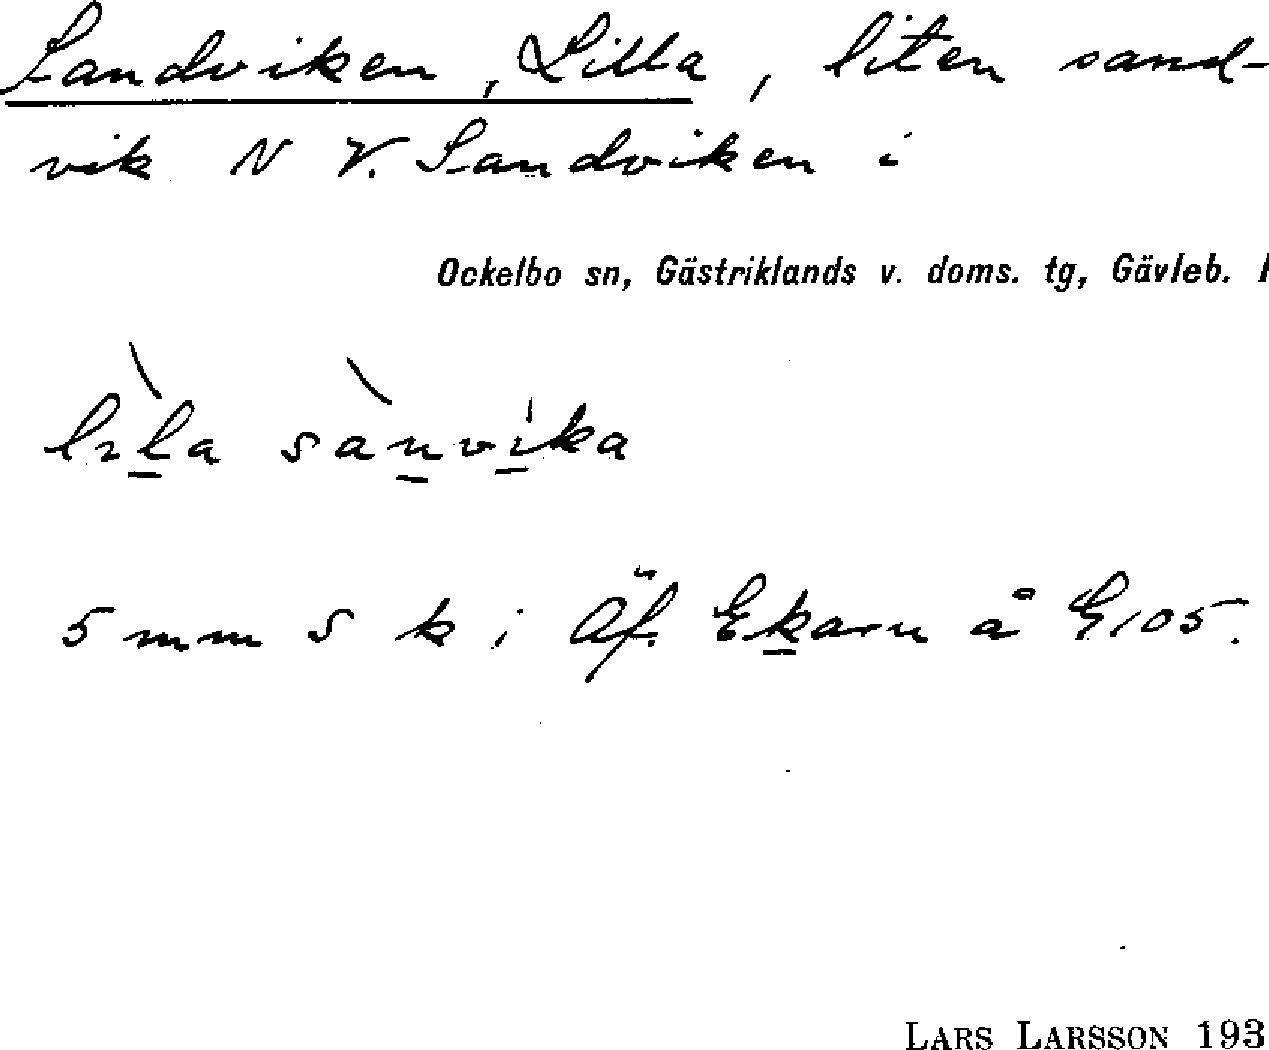 Sandviken, Lilla, liten sand-
vik N V. Sandviken i
Ockelbo sn, Gästriklands v. doms. tg, Gävleb. l
lıla sànvika
5 mm S k i Äf. Ekaren å E105.
LARS LARSSON 193